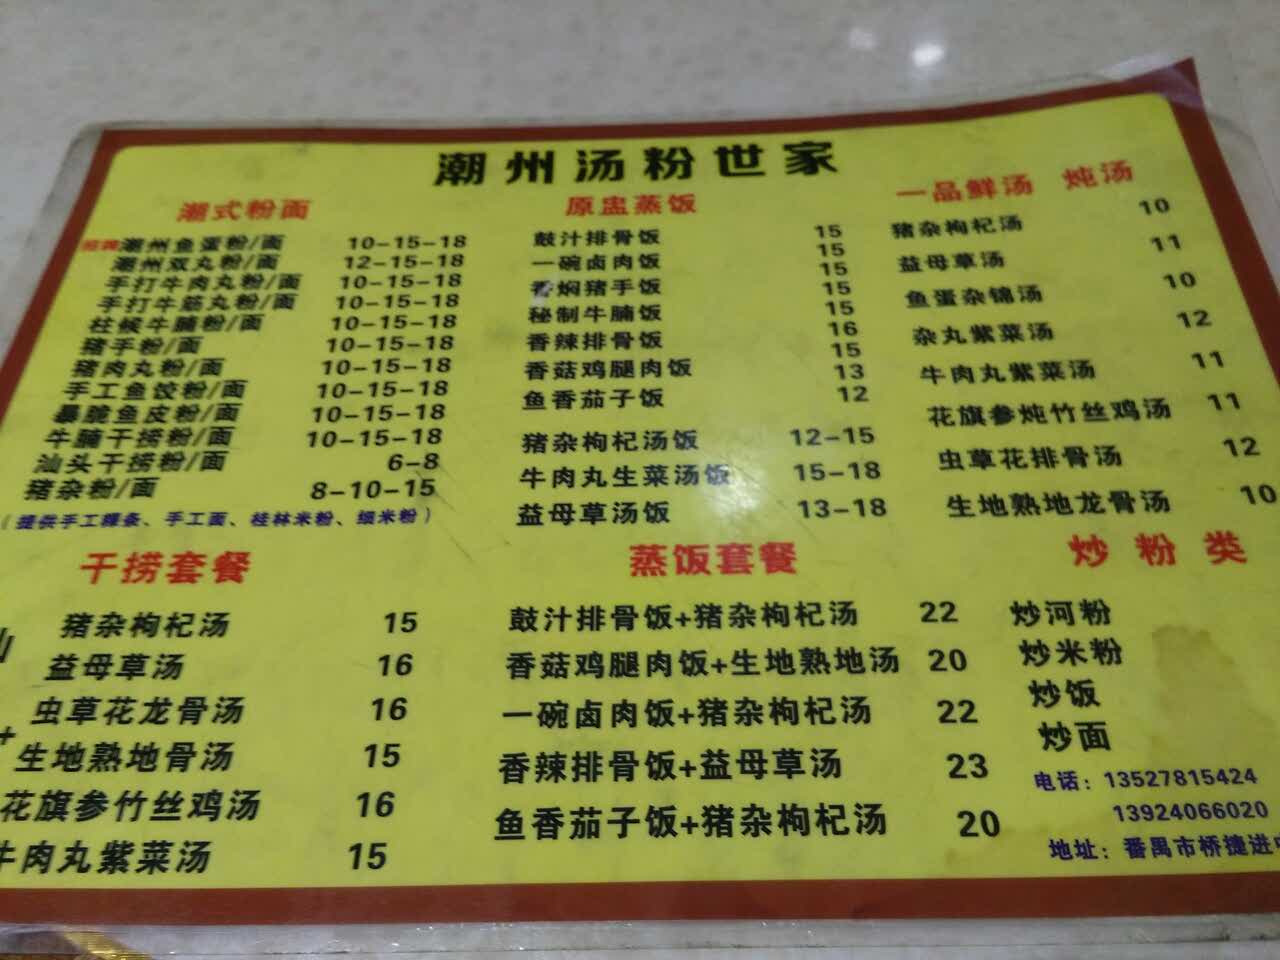 潮州汤粉世家
潮式粉面
招牌潮州鱼蛋粉/面 10-15-18
潮州双丸粉/面 12-15-18
手打牛肉丸粉/面 10-15-18
手打牛筋丸粉/面 10-15-18
柱候牛腩粉/面 10-15-18
猪手粉/面 10-15-18
猪肉丸粉/面 10-15-18
手工鱼饺粉/面 10-15-18
暴脆鱼皮粉/面 10-15-18
牛腩干捞粉/面 10-15-18
汕头干捞粉/面 6-8
猪杂粉/面 8-10-15
（提供手工粿条、手工面、桂林米粉、细米粉）
原盅蒸饭
鼓汁排骨饭 15
一碗卤肉饭 15
香焖猪手饭 15
秘制牛腩饭 15
香辣排骨饭 15
香菇鸡腿肉饭 16
鱼香茄子饭 15
13
12
猪杂枸杞汤饭 12-15
牛肉丸生菜汤饭 15-18
益母草汤饭 13-18
一品鲜汤 炖汤
猪杂枸杞汤 10
益母草汤 11
鱼蛋杂锦汤 10
杂丸紫菜汤 12
牛肉丸紫菜汤 11
花旗参炖竹丝鸡汤 11
虫草花排骨汤 12
生地熟地龙骨汤 10
干捞套餐
猪杂枸杞汤 15
益母草汤 16
+
虫草花龙骨汤 16
生地熟地骨汤 15
花旗参竹丝鸡汤 16
牛肉丸紫菜汤 15
蒸饭套餐
鼓汁排骨饭+猪杂枸杞汤 22
香菇鸡腿肉饭+生地熟地汤 20
一碗卤肉饭+猪杂枸杞汤 22
香辣排骨饭+益母草汤 23
鱼香茄子饭+猪杂枸杞汤 20
炒粉类
炒河粉
炒米粉
炒饭
炒面
电话：13527815424
13924066020
地址：番禺市桥捷进